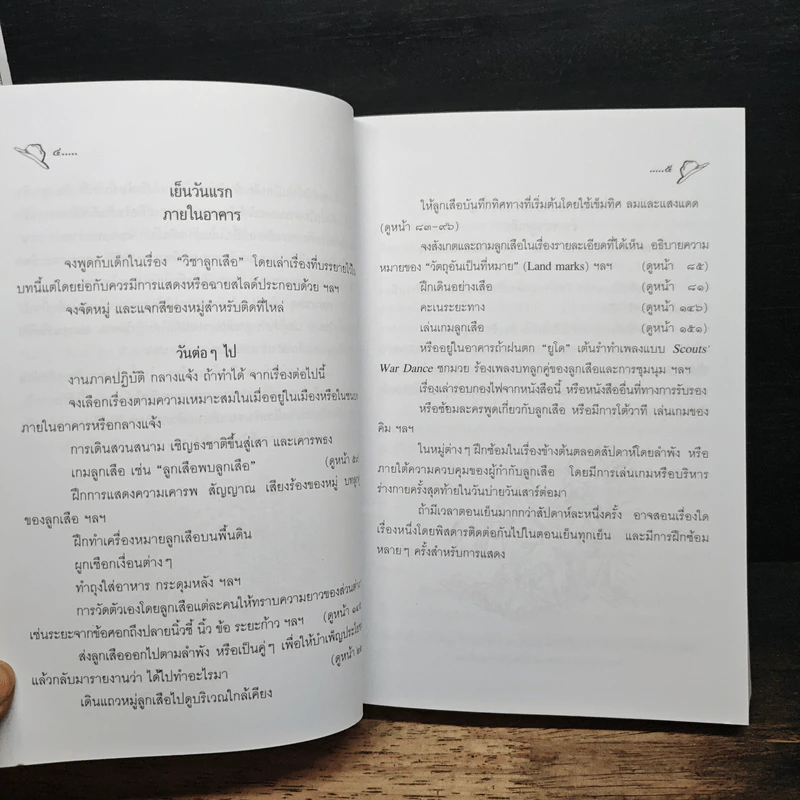 ๔.....
เย็นวันแรก
ภายในอาคาร
จงพูดกับเด็กในเรื่อง “วิชาลูกเสือ” โดยเล่าเรื่องที่บรรยายไว้ใน
บทนี้แต่โดยย่อกับควรมีการแสดงหรือฉายสไลด์ประกอบด้วย ฯลฯ
จงจัดหมู่ และแจกสีของหมู่สำหรับติดที่ไหล่
วันต่อๆ ไป
งานภาคปฏิบัติ กลางแจ้ง ถ้าทำได้ จากเรื่องต่อไปนี้
จงเลือกเรื่องตามความเหมาะสมในเมื่ออยู่ในเมืองหรือในชนบท
ภายในอาคารหรือกลางแจ้ง
การเดินสวนสนาม เชิญธงชาติขึ้นสู่เสา และเคารพธง
เกมลูกเสือ เช่น “ลูกเสือพบลูกเสือ” (ดูหน้า
ฝึกการแสดงความเคารพ สัญญาณ เสียงร้องของหมู่
ของลูกเสือ ฯลฯ
ฝึกทำเครื่องหมายลูกเสือบนพื้นดิน
ผูกเชือกเงื่อนต่างๆ
ทำถุงใส่อาหาร กระดุมหลัง ฯลฯ
การวัดตัวเองโดยลูกเสือแต่ละคนให้ทราบความยาวของส่วนต่างๆ
เช่นระยะจากข้อศอกถึงปลายนิ้วชี้ นิ้ว ข้อ ระยะก้าว ฯลฯ (ดูหน้า
ส่งลูกเสือออกไปตามลำพัง หรือเป็นคู่ๆ เพื่อให้บำเพ็ญประโยชน์
แล้วกลับมารายงานว่า ได้ไปทำอะไรมา (ดูหน้า
เดินแถวหมู่ลูกเสือไปดูบริเวณใกล้เคียง
.....๕
ให้ลูกเสือบันทึกทิศทางที่เริ่มต้นโดยใช้เข็มทิศ ลมและแสงแดด
(ดูหน้า ๘๓-๙๖)
จงสังเกตและถามลูกเสือในเรื่องรายละเอียดที่ได้เห็น อธิบายความ
หมายของ “วัตถุอันเป็นที่หมาย” (Land marks) ฯลฯ (ดูหน้า ๘๕)
ฝึกเดินอย่างเสือ (ดูหน้า ๘๑)
คะเนระยะทาง (ดูหน้า ๑๔๖)
เล่นเกมลูกเสือ (ดูหน้า ๑๕๑)
หรืออยู่ในอาคารถ้าฝนตก “ยูโด” เต้นรำทำเพลงแบบ Scouts'
War Dance ชกมวย ร้องเพลงบทลูกคู่ของลูกเสือและการชุมนุม ฯลฯ
เรื่องเล่ารอบกองไฟจากหนังสือนี้ หรือหนังสืออื่นที่ทางการรับรอง
หรือซ้อมละครพูดเกี่ยวกับลูกเสือ หรือมีการโต้วาที เล่นเกมของ
คิม ฯลฯ
ในหมู่ต่างๆ ฝึกซ้อมในเรื่องข้างต้นตลอดสัปดาห์โดยลำพัง หรือ
ภายใต้ความควบคุมของผู้กำกับลูกเสือ โดยมีการเล่นเกมหรือบริหาร
ร่างกายครั้งสุดท้ายในวันบ่ายวันเสาร์ต่อมา
ถ้ามีเวลาตอนเย็นมากกว่าสัปดาห์ละหนึ่งครั้ง อาจสอนเรื่องใด
เรื่องหนึ่งโดยพิสดารติดต่อกันไปในตอนเย็นทุกเย็น และมีการฝึกซ้อม
หลายๆ ครั้งสำหรับการแสดง